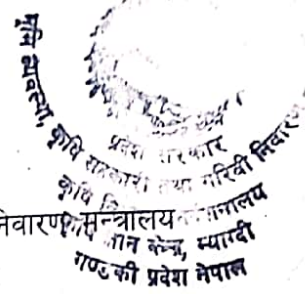 भूमि व्यवस्था, कृषि सहकारी तथा गरिवी निवारण
प्रदेश सरकार
कृषि
निवारण मन्त्रालय
ज्ञान केन्द्र, म्याग्दी
गण्डकी प्रदेश नेपाल